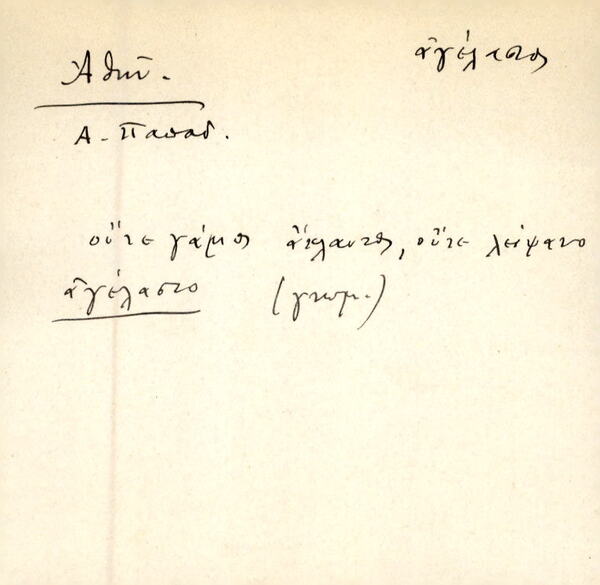 ἀγέλαστος
Ἀθῆν.
Α. Παπαδ.
οὔτε γάμος ἄκλαυτος, οὔτε λείψανο
ἀγέλαστο (γνωμ.)